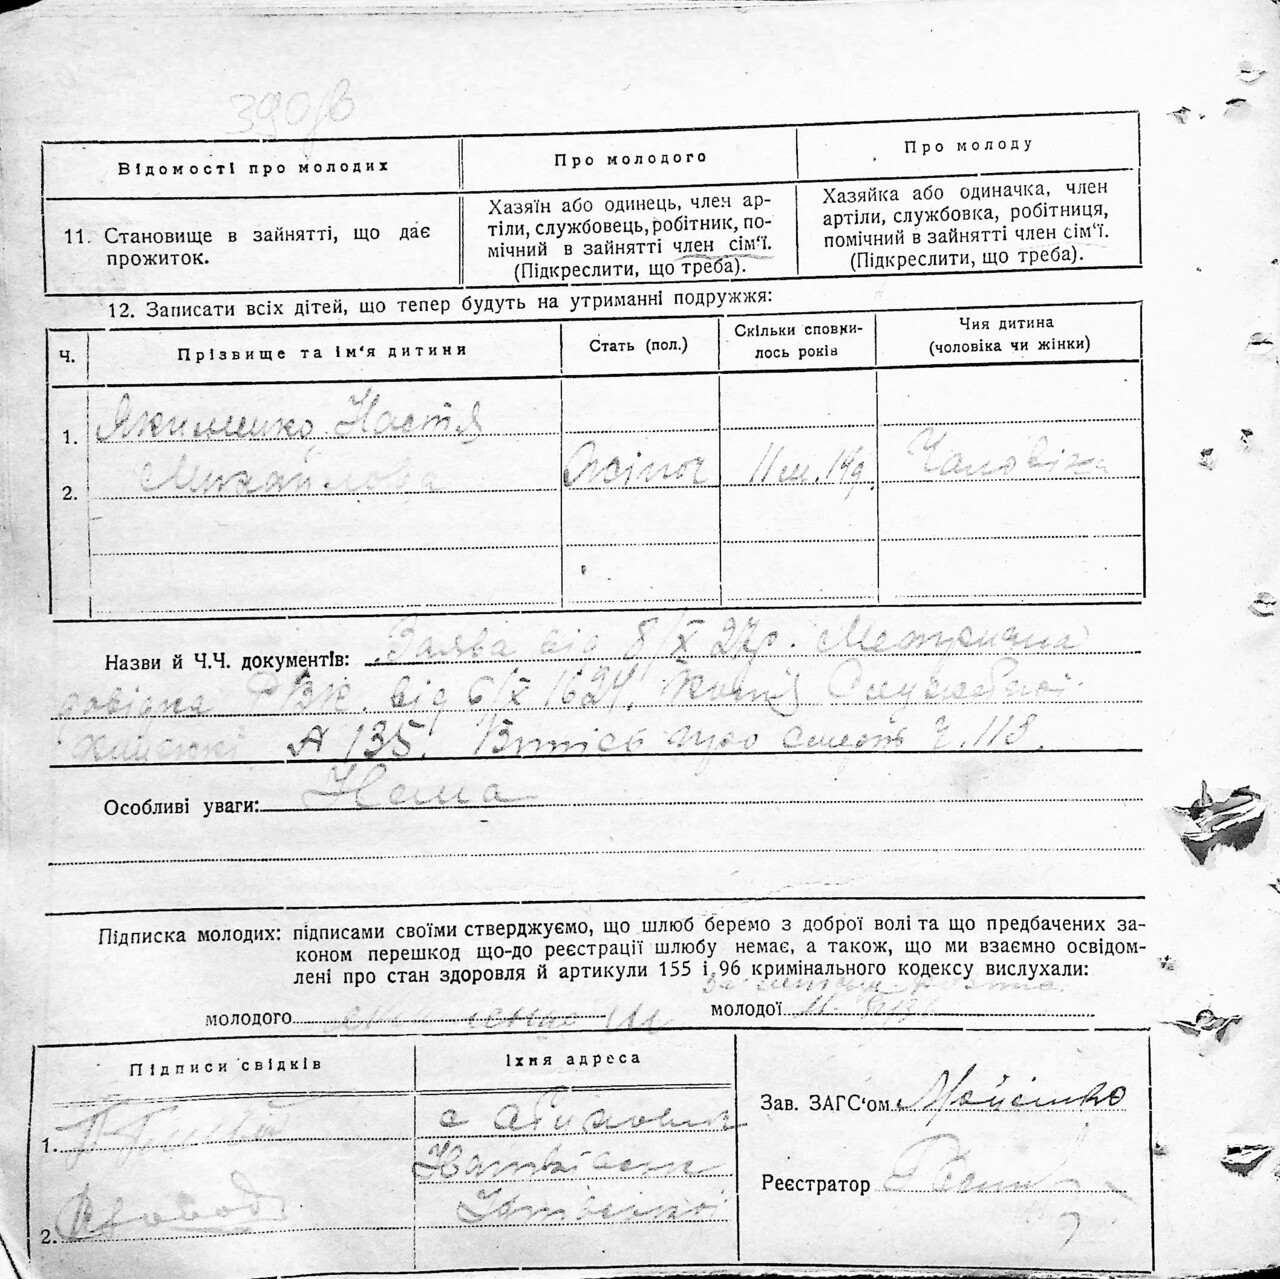 Відомості про молодих
Про молодого
Про молоду
11. Становище в зайнятті, що дає
прожиток.
Хазяїн або одинець, член ар-
тіли, службовець, робітник, по-
мічний в зайнятті член сім'ї.
(Підкреслити, що треба).
Хазяйка або одиначка, член
артіли, службовка, робітниця,
помічний в зайнятті член сім'ї.
(Підкреслити, що треба).
12. Записати всіх дітей, що тепер будуть на утриманні подружжя:
Ч.
Прізвище та ім'я дитини
Стать (пол.)
Скільки сповни-
лось років
Чия дитина
(чоловіка чи жінки)
1. Настя
2. Михайлова 11 м. 14 д. Чоловіка
Назви й Ч.Ч. документів: Заява від 8/X 27р. Метрична
довідка РВК. від 6/X
А 135. Витпісь про смерть Ч. 118.
Особливі уваги: Нема
Підписка молодих: підписами своїми стверджуємо, що шлюб беремо з доброї волі та що предбачених за-
коном перешкод що-до реєстрації шлюбу немає, а також, що ми взаємно освідом-
лені про стан здоровля й артикули 155 і 96 кримінального кодексу вислухали:
молодого
молодої
Підписи свідків
Їхня адреса
1.
2.
Зав. ЗАГС'ом
Реєстратор